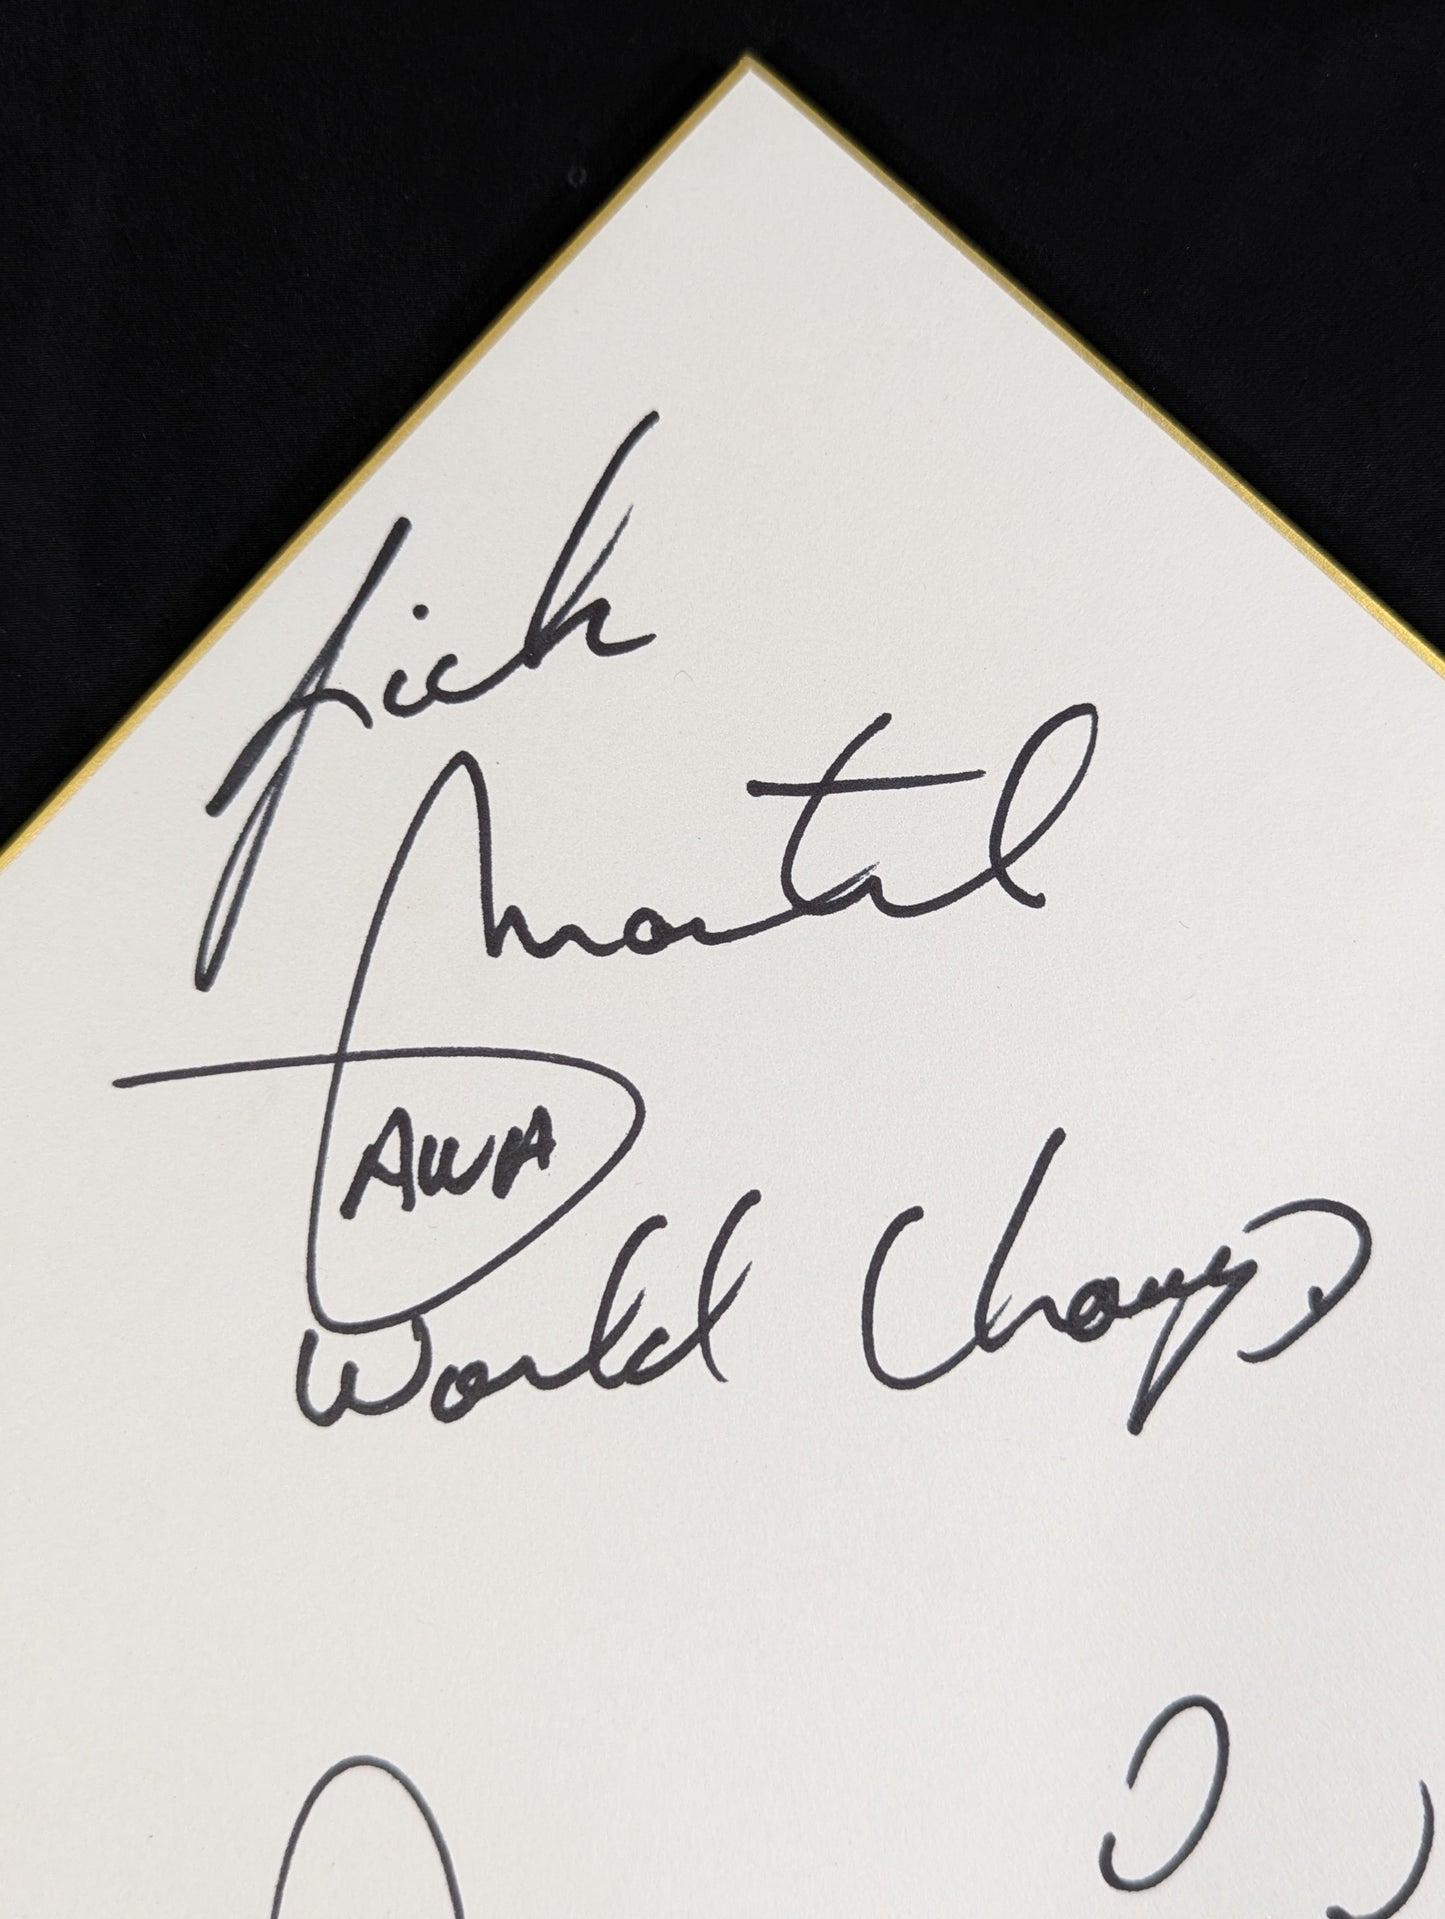 Rick
Martel
AWA
World Champ